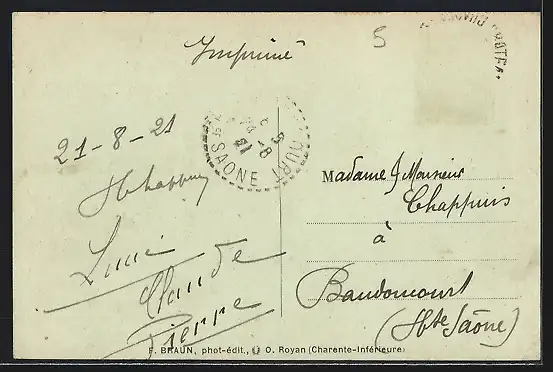 Imprimé
5
21-8-21
HChappuy
Lucie
Claude
Pierre
Hte SAÔNE
Madame & Monsieur
Chappuis
à
Baudoncourt
(Hte Saône)
E. BRAUN, phot-édit., O. Royan (Charente-Inférieure)